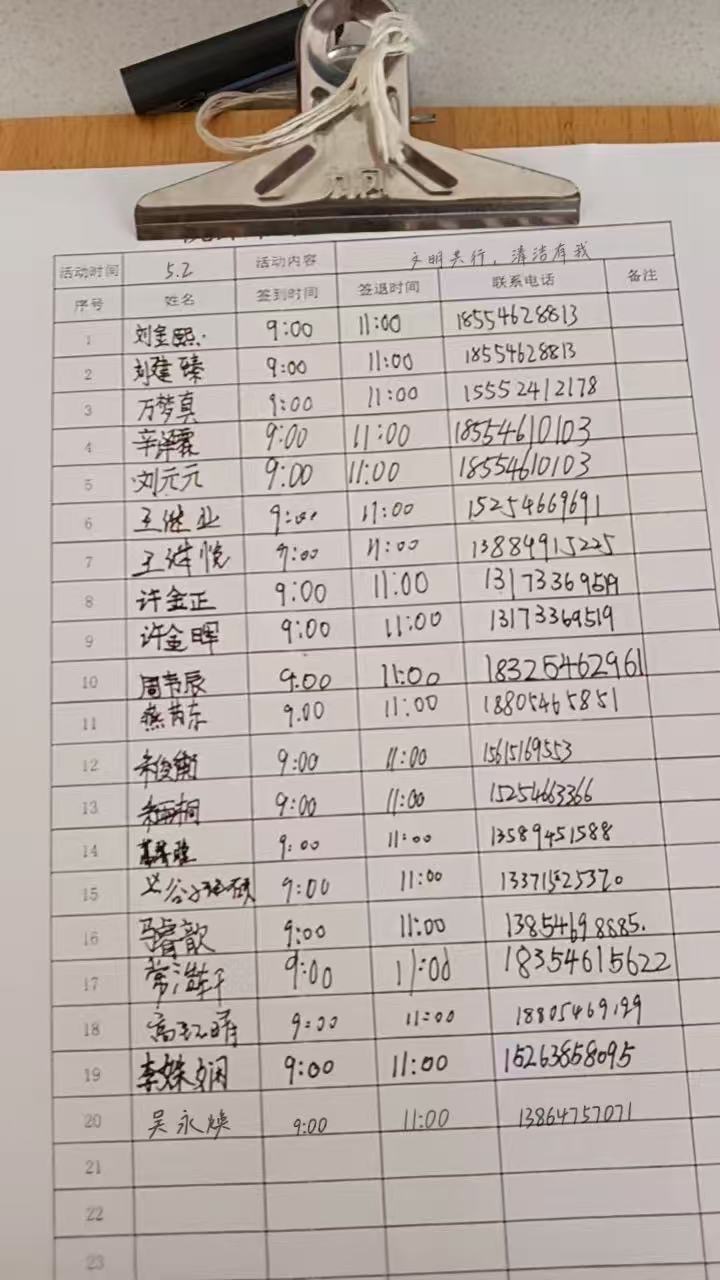 活动时间 5.2 活动内容 文明共行，清洁有我
序号 姓名 签到时间 签退时间 联系电话 备注
1 刘金熙 9:00 11:00 18554628813
2 刘建臻 9:00 11:00 18554628813
3 万梦真 9:00 11:00 15552412178
4 辛泽霖 9:00 11:00 18554610103
5 刘元元 9:00 11:00 18554610103
6 王继业 9:00 11:00 15254669691
7 王继悦 9:00 11:00 13884915225
8 许金正 9:00 11:00 13173369519
9 许金晖 9:00 11:00 13173369519
10 周辰 9:00 11:00 18325462961
11 9.00 11:00 18805465851
12 朱俊衡 9:00 11:00 15615169553
13 朱梧桐 9:00 11:00 15254663366
14 9:00 11:00 13589451588
15 9:00 11:00 13371525370
16 马睿歆 9:00 11:00 13854698885.
17 常浩轩 9:00 11:00 18354615622
18 高 9:00 11:00 18805469199
19 李姝娴 9:00 11:00 15263858095
20 吴永焕 9:00 11:00 13864757071
21
22
23